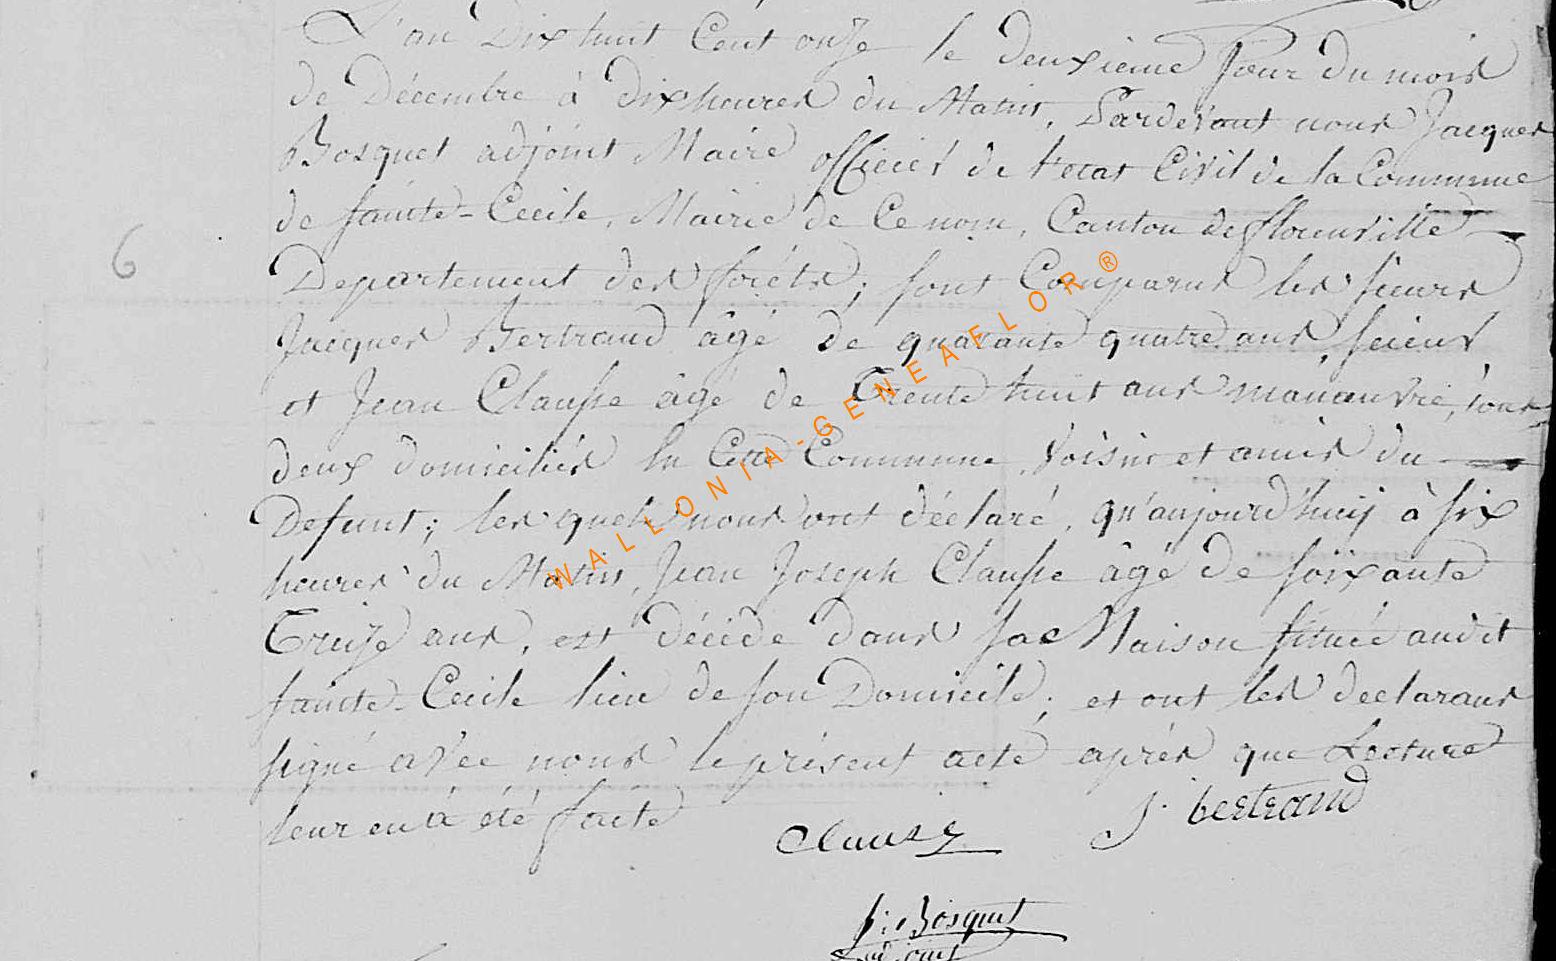 L'an Dix huit Cent onze le deuxieme Jour du mois
de Décembre à dix heures du Matin, Pardevant nous Jacques
Bosquet adjoint Maire officier de l'etat Civil de la Commune
6
de sainte-Cecile, Mairie de Ce nom, Canton de florenville
Departement des forêts; sont Comparus les sieurs
Jacques Bertrand âgé de quarante quatre ans, scieur
et Jean Clausse âgé de Trente huit ans manœuvre, tous
deux domiciliés en Cette Commune, voisin et amis du
Defunt; les quels nous ont déclaré, qu'aujourd'huij à six
heures du Matin, Jean Joseph Clausse âgé de soixante
Treize ans, est décédé dans sa Maison située audit
sainte-Cecile lieu de son Domicile; et ont les declarans
signé avec nous le présent acte après que Lecture
leur en à été faite
Clausse
J. bertrand
J: Bosquet
WALLONIA-GENEAFLOR®